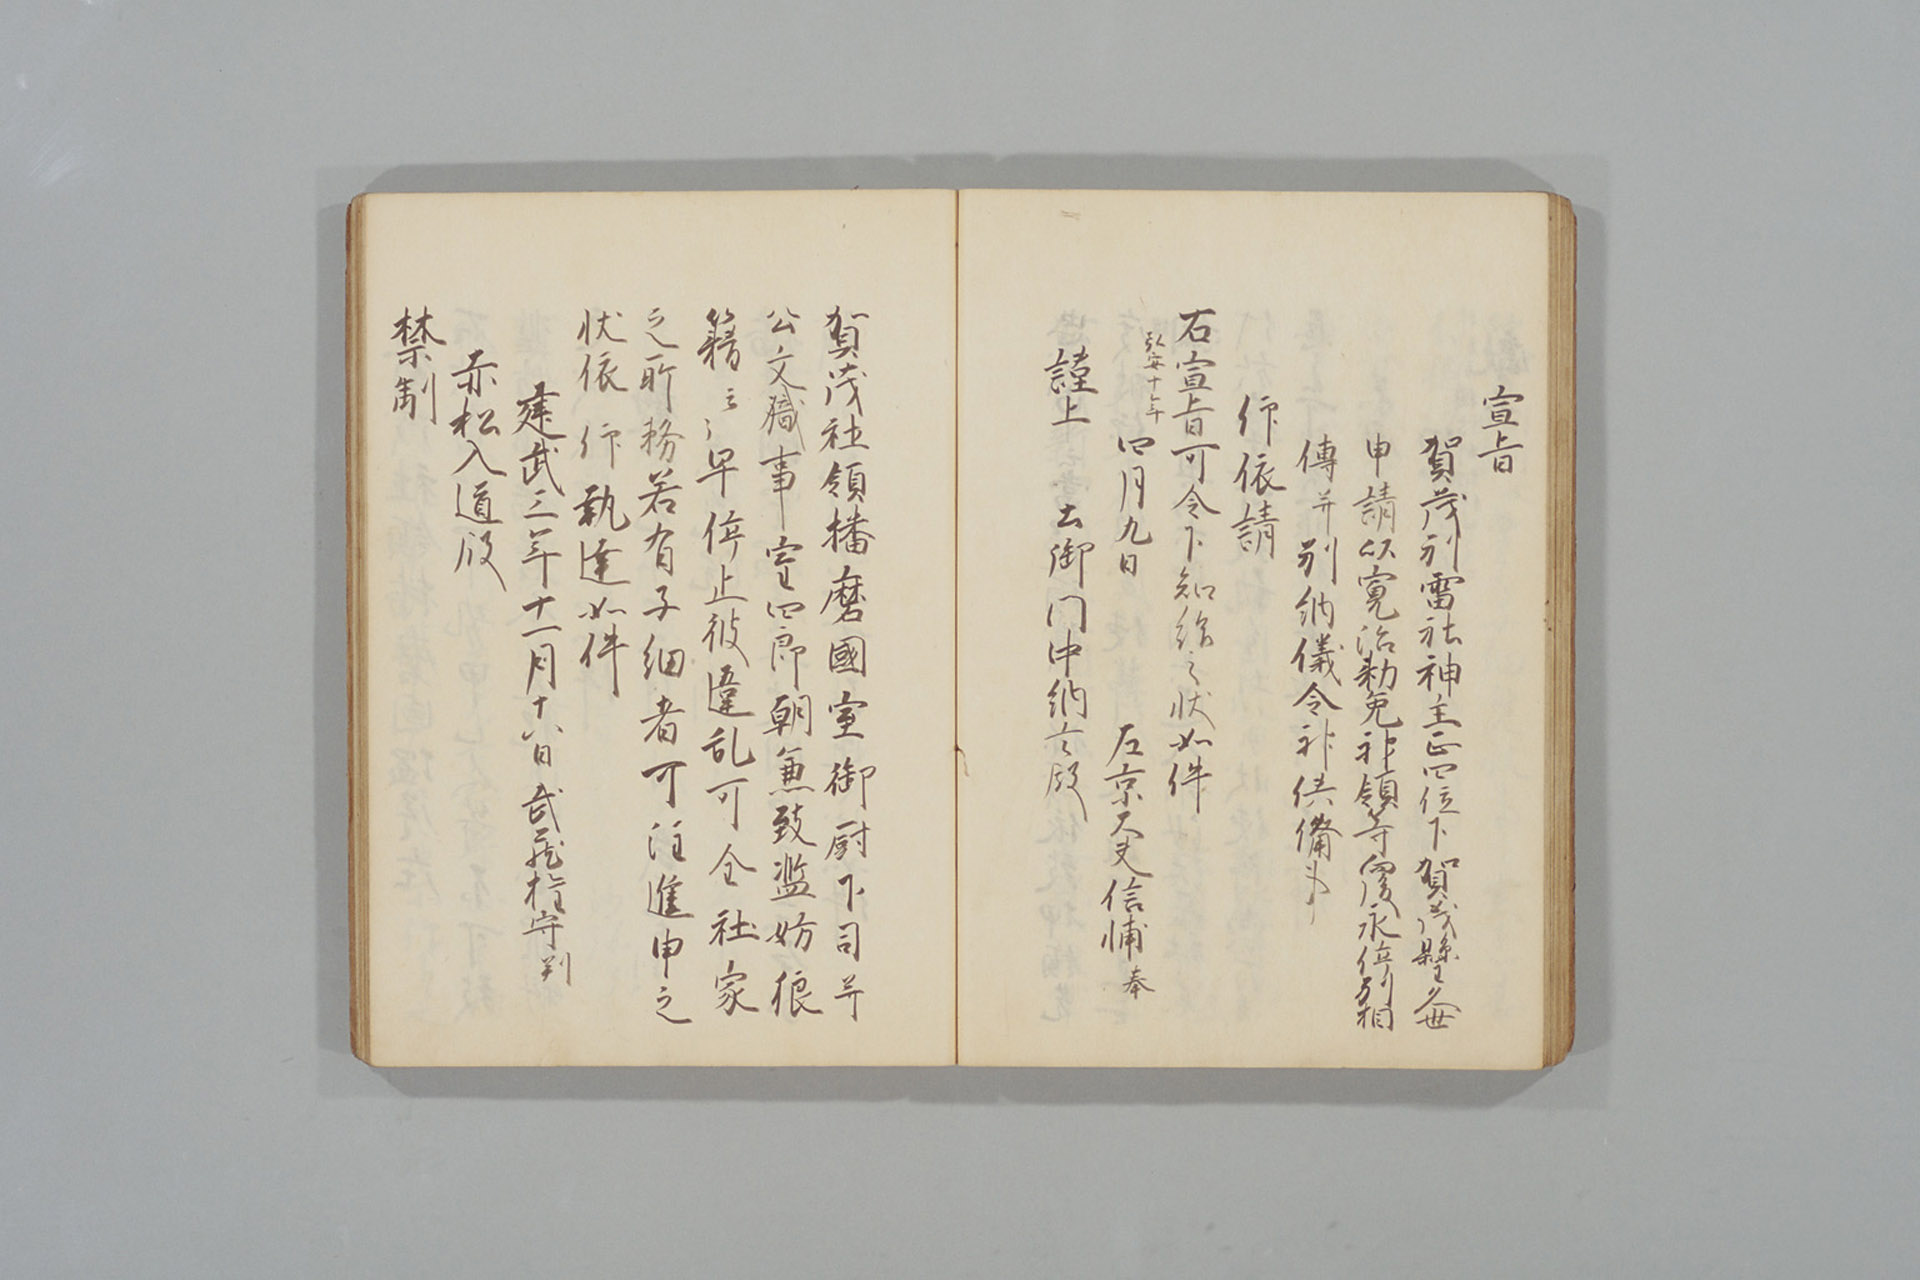 宣旨
賀茂別雷社神主正四位下賀茂縣主
申請以寛治勅免神領等永停別相
傳并別納儀令神供備事
仰依請
右宣旨可令下知給之状如件
弘安十年
四月九日　左京大夫信輔奉
謹上　土御門中納言殿
賀茂社領播磨國室御厨下司并
公文職事室四郎朝兼致濫妨狼
籍云々早停止彼違乱可全社家
之所務若有子細者可注進申之
状依仰執達如件
建武三年十一月十八日武蔵権守判
赤松入道殿
禁制